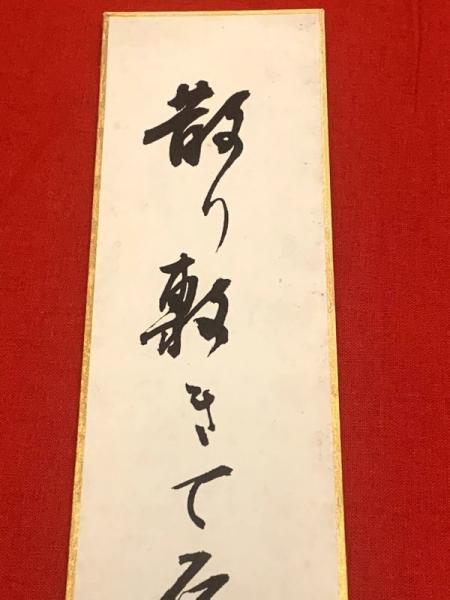 散り敷きて